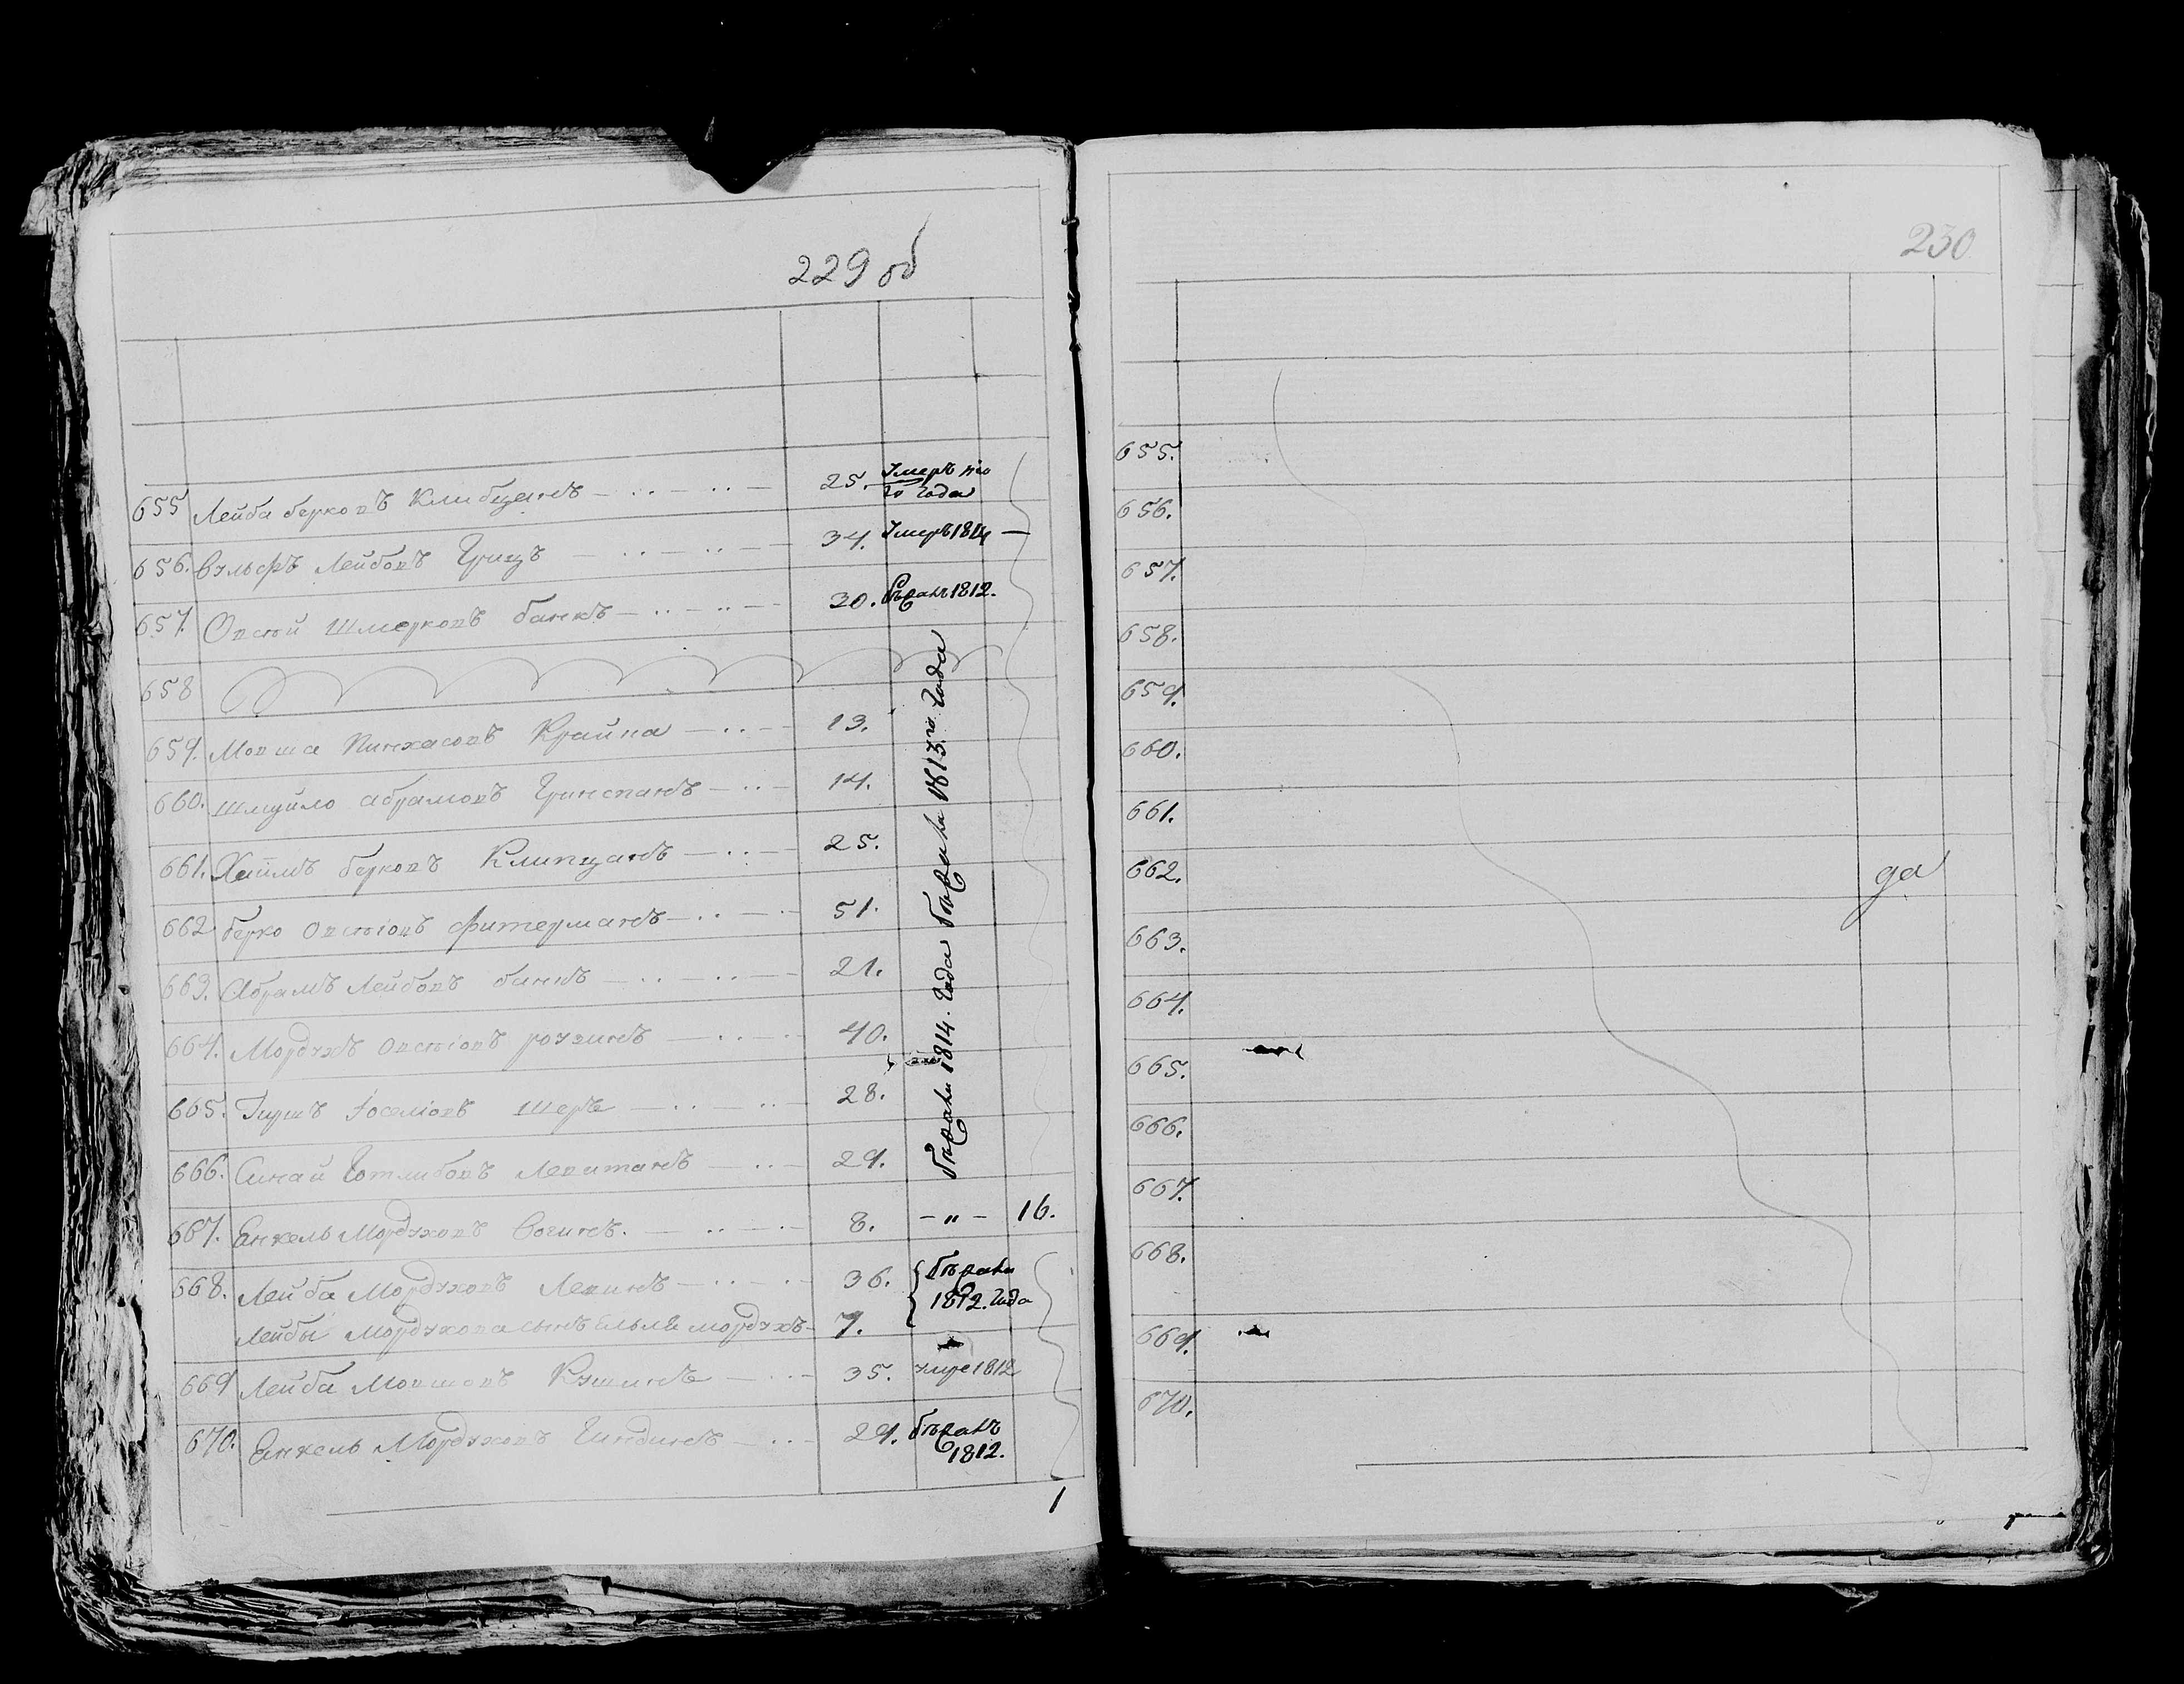 229 об
655 Лейба берковъ Клибцанъ 25. Умеръ
года
656. Вульфъ Лейбовъ Грицъ 34. Умеръ 1814
657. Овсей Шмерковъ банкъ 30. бѣжалъ 1812.
658
659. Мовша Пинхасовъ Крайна 13.
660. Шмуйло абрамовъ Гринспанъ 14.
661. Хаимъ берковъ Клипцанъ 25.
662 берко Овсѣіовъ фитерманъ 51.
663. Абрамъ Лейбовъ банкъ 21.
664. Мордухъ Овсѣіовъ розинъ 40.
665. Гиршъ Іоселіовъ шеръ 28.
666. Синай Готлибовъ Левитанъ 29.
бѣжали 1814. года бѣжали 1813го. года
667. Енкель Мордуховъ Согинъ. 8. — „ — 16.
668. Лейба Мордуховъ Левинъ 36. бѣжали
1812. года
Лейбы Мордухова сынъ мордухъ 7.
669 Лейба Мовшовъ Кушинъ 35. умре 1812
670. Енкель Мордуховъ Гиндинъ 29. бѣжалъ
1812.
1
230
655.
656.
657.
658.
659.
660.
661.
662. да
663.
664.
665.
666.
667.
668.
669.
670.